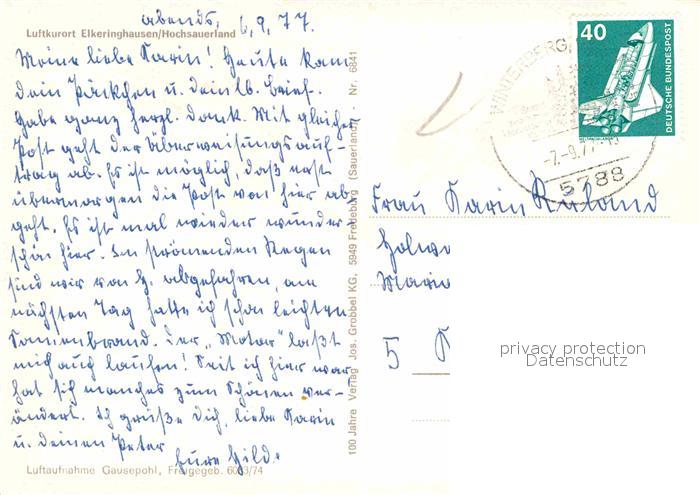 abends, 6.9.77.
Luftkurort Elkeringhausen/Hochsauerland
Meine liebe Karin! Heute kam
dein Päckchen u. dein lb. Brief.
Habe ganz herzl. Dank. Mit gleicher
Post geht der Überweisungsauf-
trag ab. Es ist möglich, daß erst
übermorgen die Post von hier ab-
geht. Es ist mal wieder wunder-
schön hier. In strömenden Regen
sind wir von H. abgefahren, am
nächsten Tag hatte ich schon leichten
Sonnenbrand. Der „Motor" läßt
mich auch laufen! Seit ich hier war
hat sich manches zum Schönen ver-
ändert. Ich grüße Dich, liebe Karin
u. deinen Peter
Eure Hild.
Luftaufnahme Gausepohl, Freigegeb. 6003/74
100 Jahre Verlag Jos. Grobbel KG, 5949 Fredeburg (Sauerland) - Nr. 6841
WINTERBERG
-7.-9.77
5788
40
DEUTSCHE BUNDESPOST
Frau Karin Ruland
5
privacy protection
Datenschutz